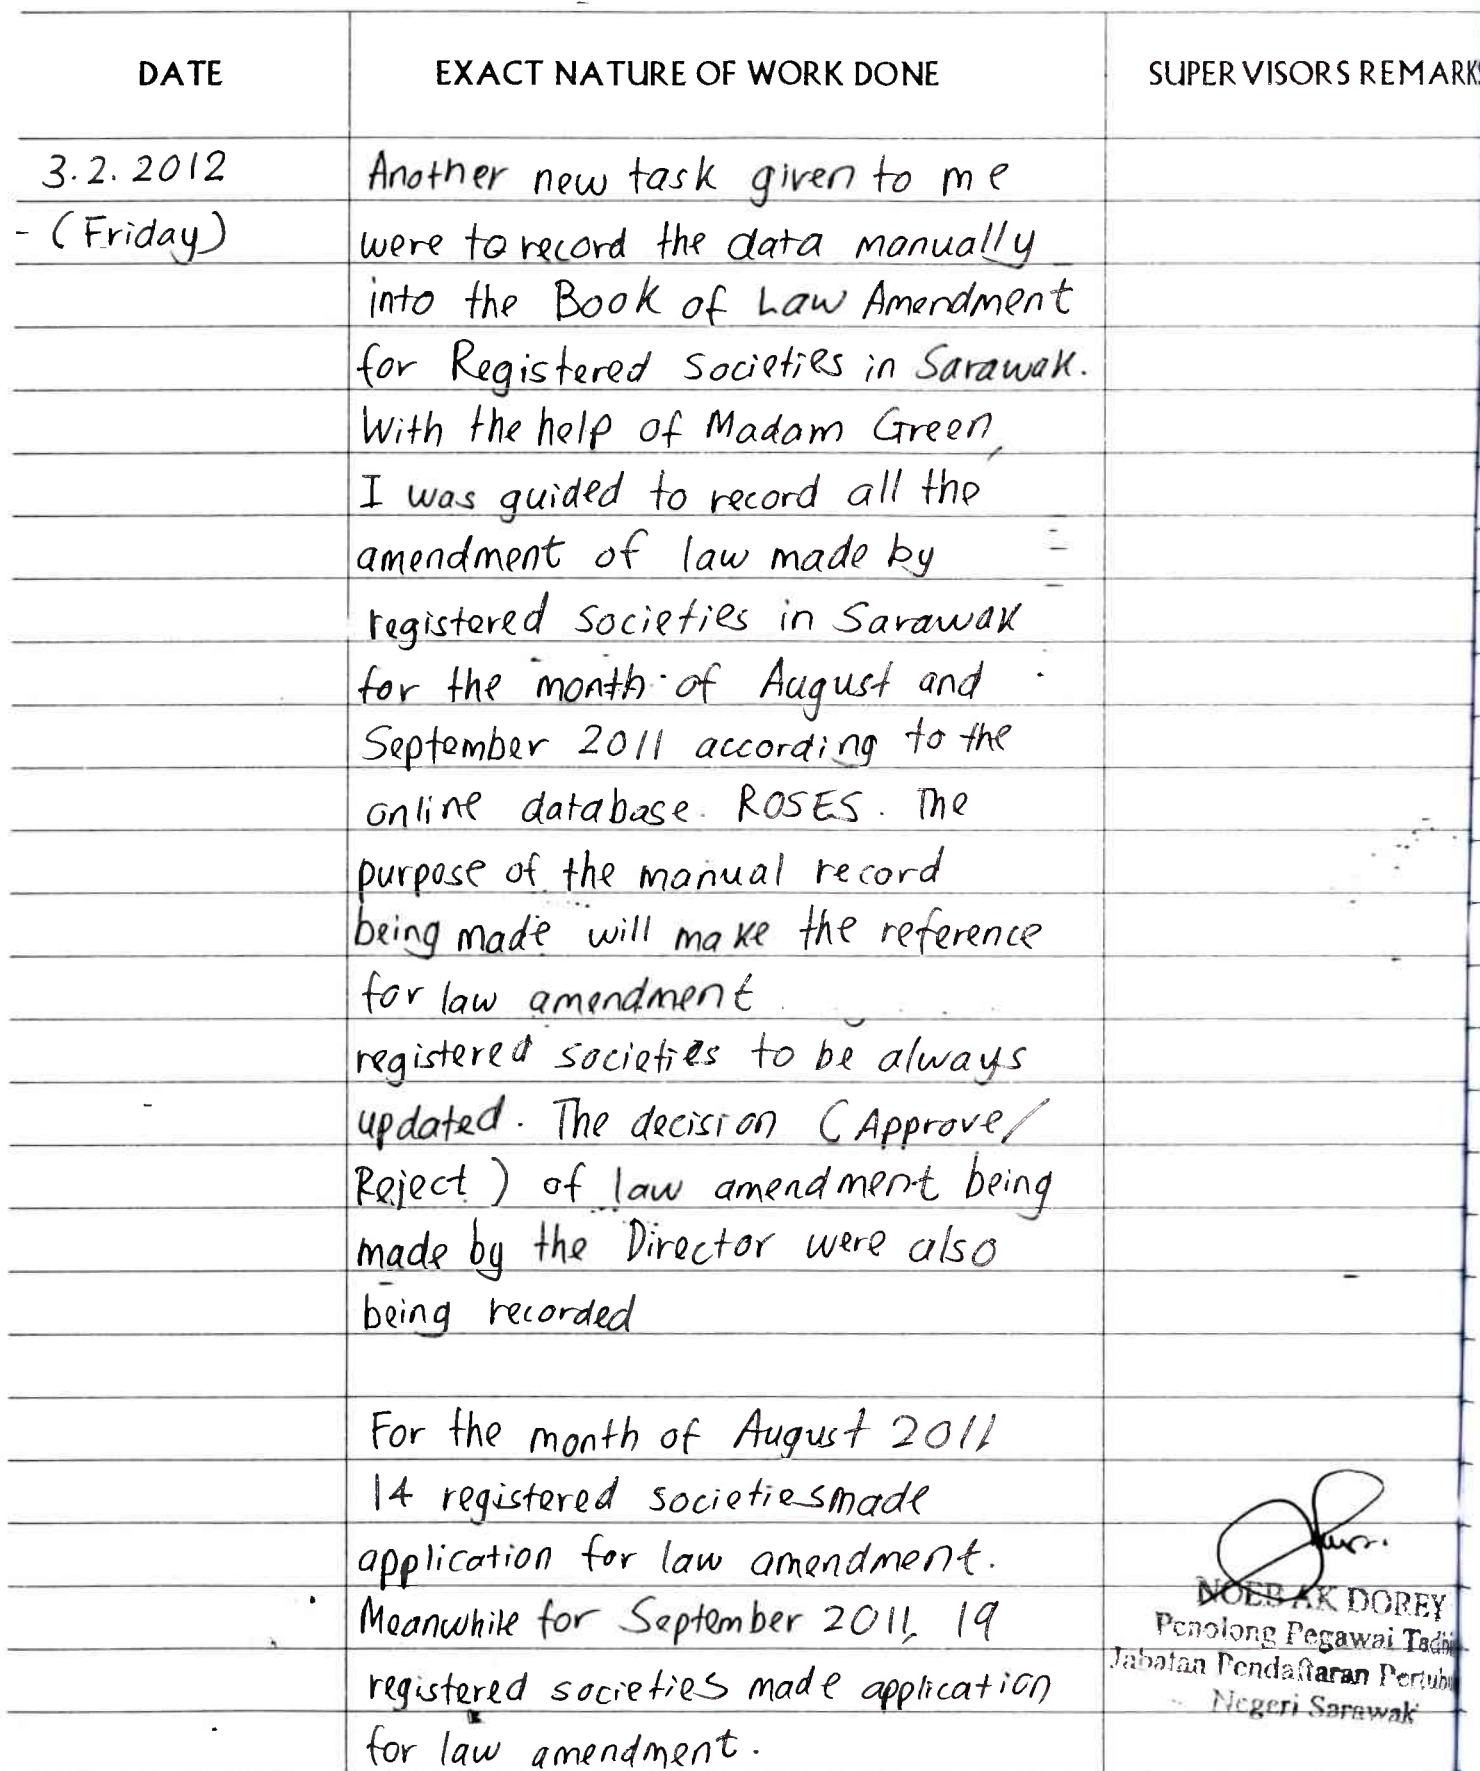 DATE EXACT NATURE OF WORK DONE SUPERVISORS REMARKS
3.2.2012 Another new task given to me
- (Friday) were to record the data manually
into the Book of Law Amendment
for Registered Societies in Sarawak.
With the help of Madam Green,
I was guided to record all the
amendment of law made by
registered societies in Sarawak
for the month of August and
September 2011 according to the
online database ROSES. The
purpose of the manual record
being made will make the reference
for law amendment
registered societies to be always
updated. The decision (Approve/
Reject) of law amendment being
made by the Director were also
being recorded
For the month of August 2011
14 registered societies made
application for law amendment.
Meanwhile for September 2011, 19
registered societies made application
for law amendment.
AK DOREY
Penolong Pegawai Tadbi
Jabatan Pendaftaran Pertubu
Negeri Sarawak